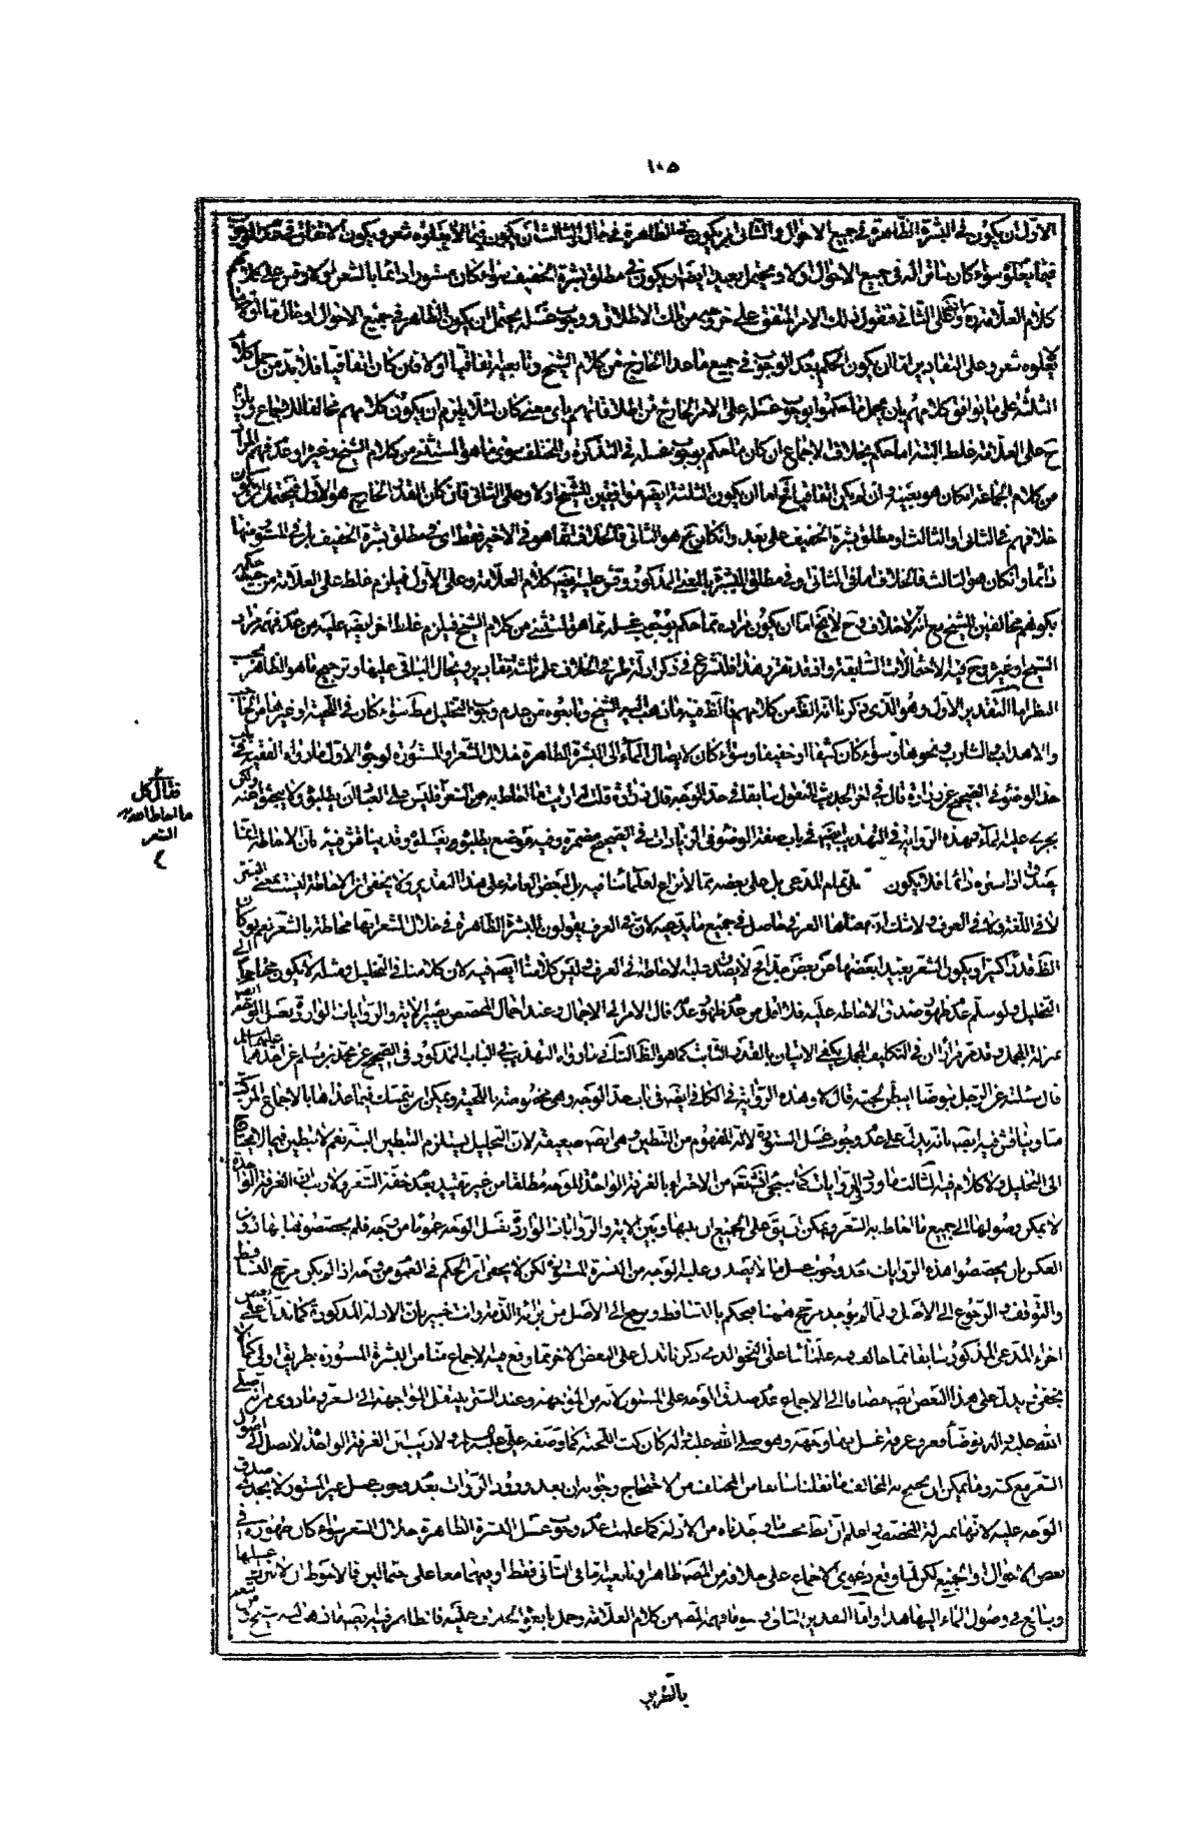 ١٠٥
الاول ان يكون في البشرة الظاهرة في جميع الاحوال والثاني ان يكون في الظاهرة في حال الثالث ان يكون فيما لا يعلوه شعر ويكون لا خلاف
فيما يعلوه سواء كان ساترا له في جميع الاحوال او لا ويحتمل بعيدا ايضا ان يكون في مطلق بشرة الخفيف سواء كان مستورا دائما بالشعر او لا وقس على كلامهم
كلام العلامة ره واتكل الثاني فنقول ذلك الامر المتفق على خروجه من تلك الاطلاق ووجوب غسله يحتمل ان يكون الظاهر في جميع الاحوال او حال ما او
يعلوه شعر وعلى التقادير اما ان يكون الحكم بعدم الوجوب في جميع ما عدا الخارج من كلام الشيخ وتابعيه اتفاقيا اولا فان كان اتفاقيا فلا بد من حمل كلام
الثلثة على ما يوافق كلامهم بان يحمل ما حكموا بوجوب غسله على الامر الخارج من اطلاقاتهم باي معنى كان لئلا يلزم ان يكون كلامهم مخالفا للاجماع ويلزم
ح على العلامة غلط البتة اما حكمه بخلاف الاجماع ان كان ما حكم بوجوب غسله في التذكرة والمختلف سوى ما هو المستثنى من كلام الشيخ وغيره او عدم فهم المراد
من كلام الجماعة ان كان هو بعينه وان لم يكن اتفاقيا فح اما ان يكون الثلثة ايضا موافقين للشيخ اولا وعلى الثاني فان كان القدر الخارج هو الاول فيحتمل ان يكون
خلافهم في الثاني او الثالث او مطلق بشرة الخفيف على بعد وان كان هو الثاني فالخلاف اما هو في الاخير فقط اي في مطلق بشرة الخفيف بان المستور منها
دائما وان كان هو الثالث فالخلاف اما في الثاني او في مطلق البشرة بالمعنى المذكور وقس عليه ايضا كلام العلامة وعلى الاول فيلزم غلط على العلامة من حيث حكمه
بكونهم مخالفين للشيخ مع انه لا خلاف وح لا يخ اما ان يكون مراده مما حكم بوجوب غسله مما هو المستثنى من كلام الشيخ فيلزم غلط اخر ايضا عليه من عدم فهم مراد
الشيخ او غيره وح كون الاحتمالات السابقة واذ قد تقرر هذا فلنشرع في ذكر ادلة طرفي الخلاف على ثلثة تقادير ويحال الباقي عليها وترجيح ما هو الظاهر بحسب
النظر اما التقدير الاول وهو الذي ذكرنا انه الظ من كلامهم فالظ فيه ما ذهب اليه الشيخ وتابعوه من عدم وجوب التخليل مط سواء كان في اللحية او غيرها من الحاجب
والاهداب والشارب ونحوها وسواء كان كثيفا او خفيفا وسواء كان لايصال الماء الى البشرة الظاهرة خلال الشعر او المستورة لوجوه الاول ما رواه الفقيه في باب
حد الوضوء في الصحيح عن زرارة قال في اخر الحديث المنقول سابقا في حد الوجه قال زرارة قلت له ارايت ما احاط به من الشعر فليس على العباد ان يطلبوه ولا يبحثوا عنه ولكن
يجري عليه الماء وهذه الرواية في التهذيب ايضا في باب صفة الوضوء في الزيادات في الصحيح مضمرة وفيه موضع يطلبوه يغسلوه وقد يناقش فيه بان الاحاطة انما
يصدق اذا ستره دائما فلا يكون على تمام المدعى بل على بعضه مما لا نزاع لعلمائنا فيه بل لبعض العامة على هذا التقدير ولا يخفى ان الاحاطة ليست بمعنى الستر
لا في اللغة ولا في العرف ولا شك ان معناها العرفي حاصل في جميع ما يدعيه لان في العرف يقولون للبشرة الظاهرة في خلال الشعر انها محاطة بالشعر نعم لو كان
القدر كثيرا ويكون الشعر بعيدا بعضها عن بعض جدا فح لا يصدق عليه الاحاطة في العرف وليس كلامنا ايضا فيه لان كلامنا في التخليل ومثله لا يكون محتاجا الى
التخليل ولو سلم عدم ظهور صدق الاحاطة عليه فلا اقل من عدم ظهور عدمه فال الامر الى الاجمال وعند اجمال المخصص يصير الاية والروايات الواردة بغسل الوجه ايضا
بمنزلة المجمل وقد تقرر ان في التكليف المجمل يكفي الاتيان بالقدر الثابت كما هو الظ الثالث ما رواه التهذيب في الباب المذكور في الصحيح عن محمد بن مسلم عن احدهما عليهما السلم
قال سئلته عن الرجل يتوضأ ايبطن لحيته قال لا وهذه الرواية في الكافي ايضا في باب حد الوجه وهي مخصوصة باللحية ويمكن ان يتمسك فيما عداها بالاجماع المركب
منا ويناقش فيه ايضا بانه يدل على عدم وجوب غسل المستورة لانه المفهوم من التبطين وهي ايضا ضعيفة لان التخليل يستلزم التبطين البتة نعم لا تبطين فيما لا يحتاج
الى التخليل ولا كلام فيه الثالث ما ورد في الروايات كما سيجئ انشاء الله من الاجزاء بالغرفة الواحدة للوجه مطلقا من غير تقييد بعدم خفة الشعر ولا ريب ان الغرفة الواحدة
لا يمكن وصولها الى جميع ما احاط به الشعر ويمكن ان يق على الجميع ان بينها وبين الاية والروايات الواردة بغسل الوجه عموما من وجه فلم يخصصوها بها دون
العكس بان يخصصوا هذه الروايات بعدم وجوب غسل ما لا يصدق عليه الوجه من البشرة المستورة لكن لا يخفى ان الحكم في العموم من وجه اذا لم يكن مرجح التساقط
والتوقف والرجوع الى الاصل ولما لم يوجد مرجح ههنا فيحكم بالتساقط ويرجع الى الاصل من براءة الذمة وانت خبير بان الادلة المذكورة كما تدل على بعض
اجزاء المدعى المذكور سابقا مما خالف فيه علمائنا على النحو الذي ذكرنا تدل على البعض الاخر مما وقع فيه الاجماع منا من البشرة المستورة بطريق اولى كما لا
يخفى ويدل على هذا البعض ايضا مضافا الى الاجماع عدم صدق الوجه على المستور لانه من المواجهة وعند الستر ينتقل المواجهة الى الشعر وما روى من انه صلى
الله عليه واله توضأ بغرفة غسل بها وجهه وهو صلى الله عليه واله كان كث اللحية كما وصفه علي عليه السلام ولا ريب ان الغرفة الواحدة لا تصل الى اصول
الشعر مع كثرته وما يمكن ان يحتج به المخالف ما نقلنا سابقا من المختلف من الاحتجاج وجوابه ان بعد ورود الروايات بعدم وجوب غسل غير المستور لا يجدي صدق
الوجه عليه لانها بمنزلة المخصص ثم اعلم ان بطلت ما وجدناه من الادلة كما علمت عدم وجوب غسل البشرة الظاهرة خلال الشعر سواء كان ظهوره في
بعض الاحوال او الجميع لكن لما وقع دعوى الاجماع على خلافه من المص ظاهرا وتابعيه اما في الثاني فقط او فيهما معا على احتمالين فالاحوط ان لا يترك غسلها
ويبالغ في وصول الماء اليها هذا واما التقدير الثاني
بالتقريب
فقال كل
ما احاط الله به
الشعر